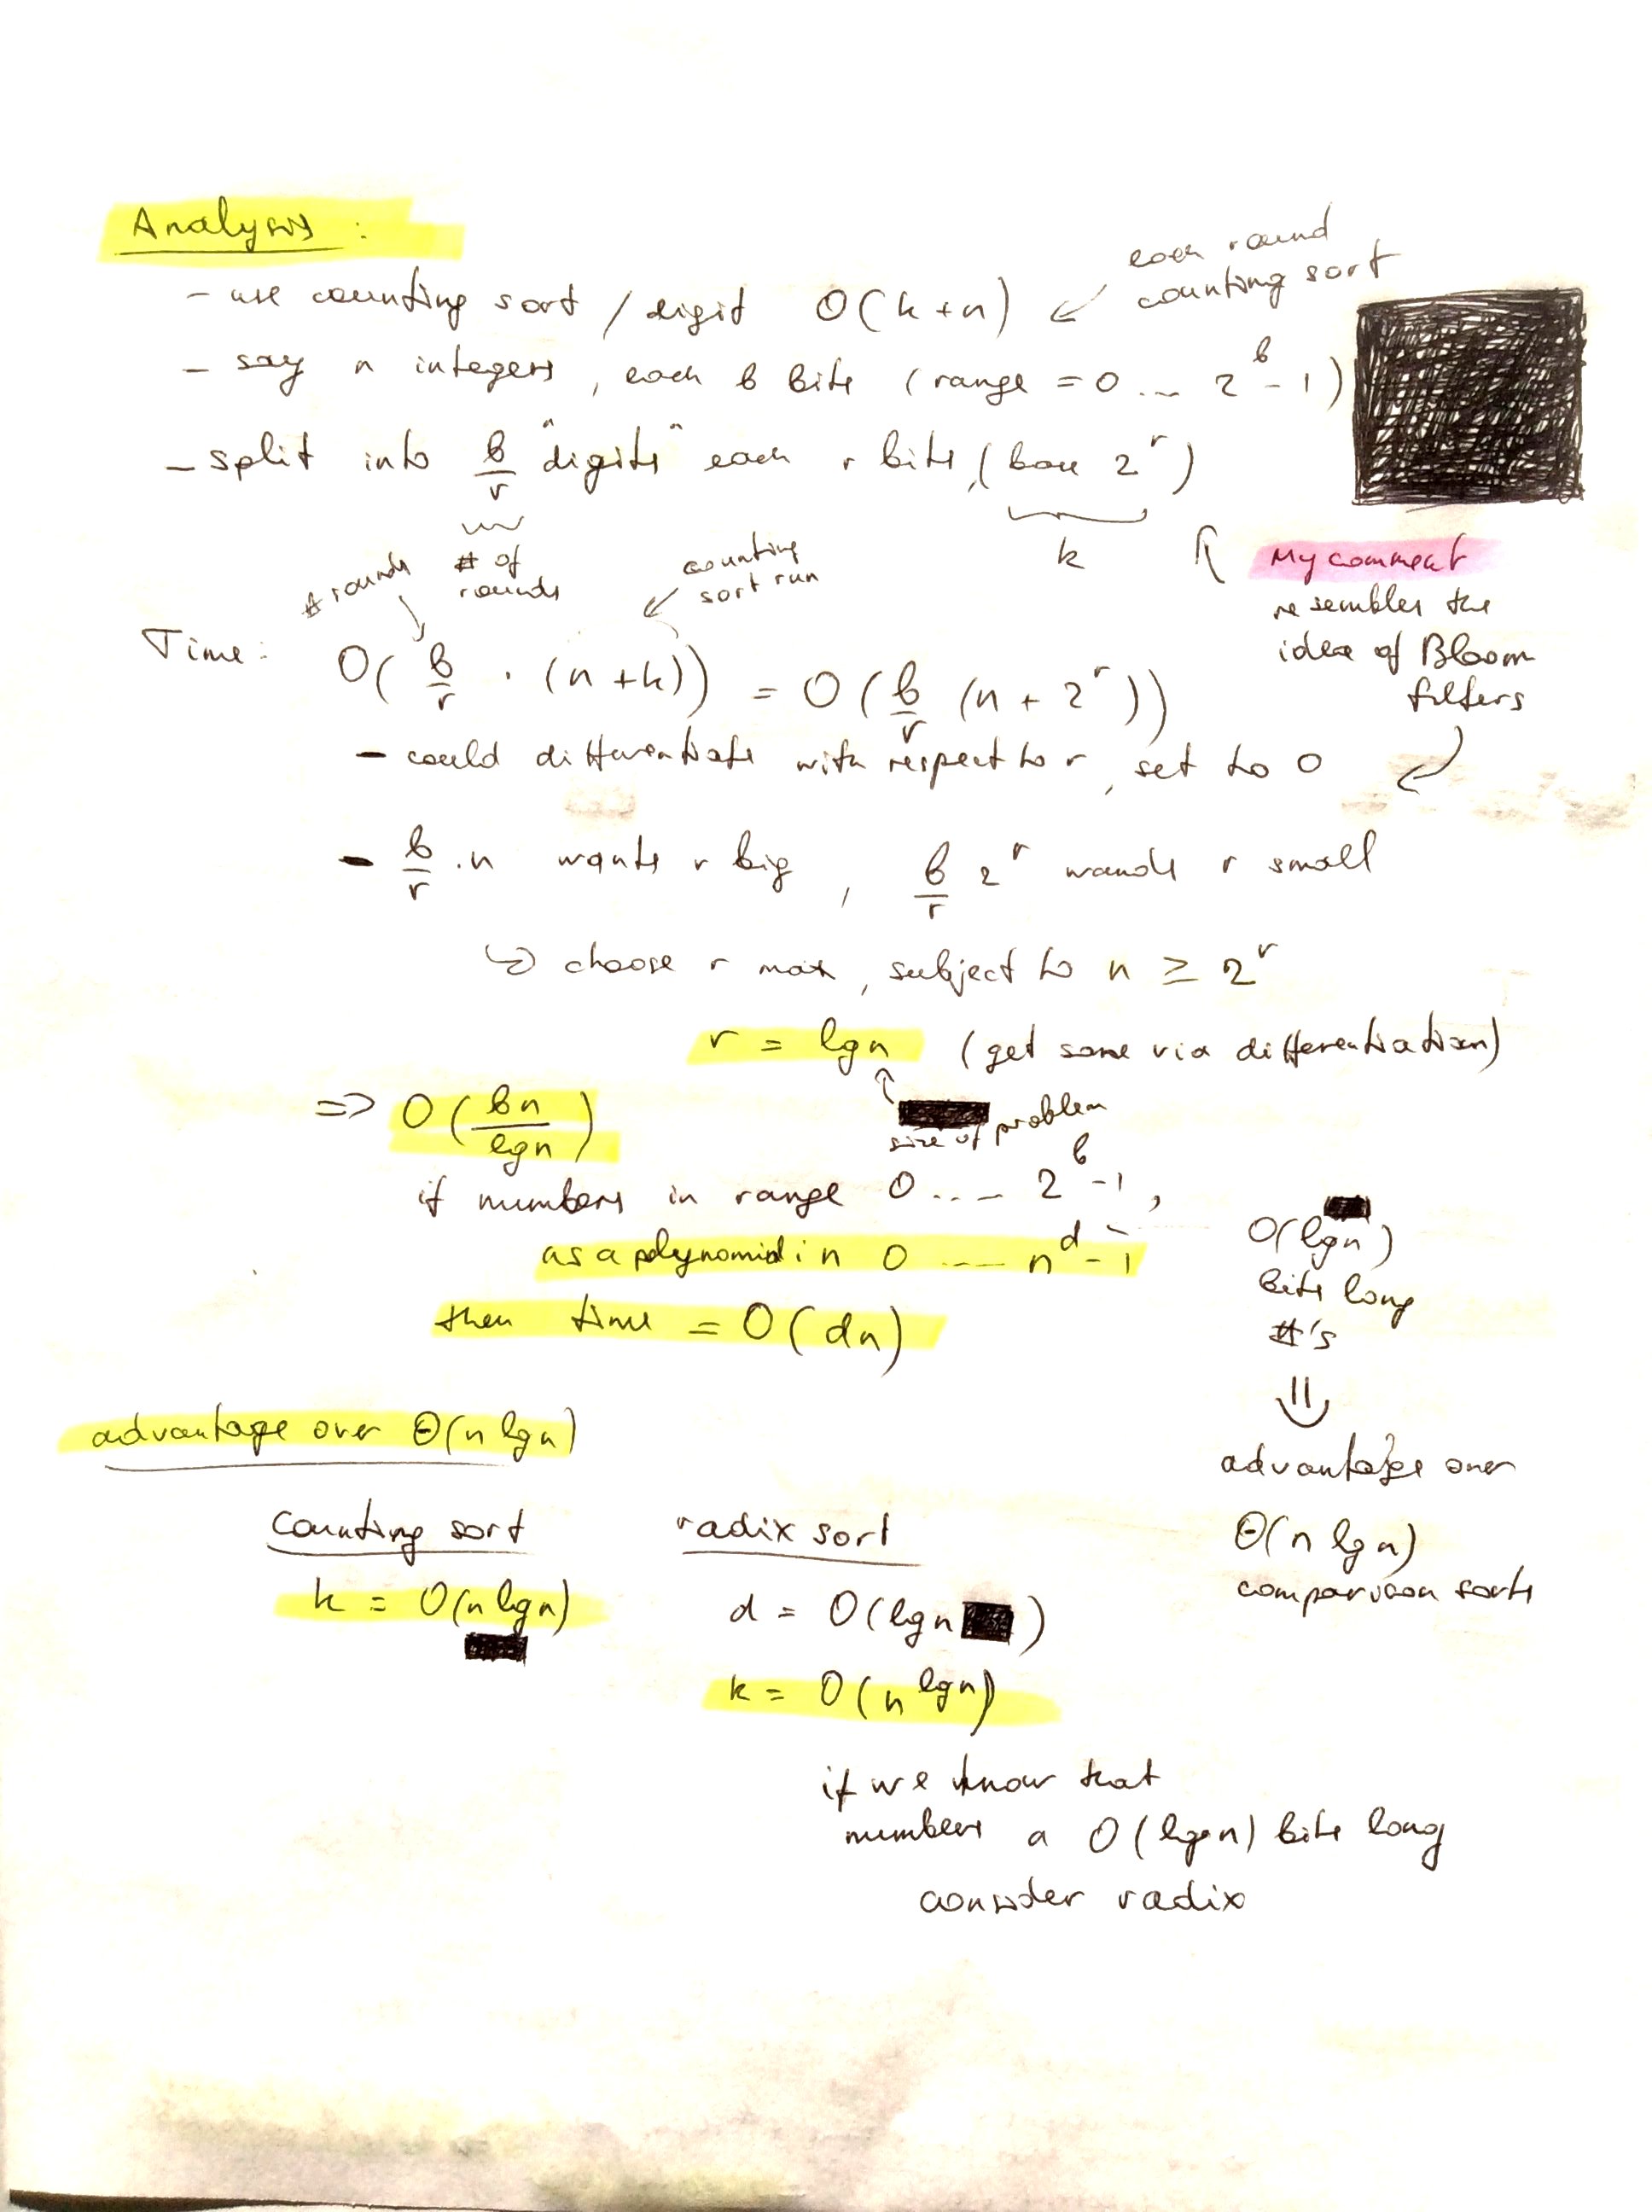 Analysis :
each round
counting sort
- use counting sort / digit O(k+n)
- say n integers, each b bits (range = 0 ... 2^b - 1)
- split into b/r "digits" each r bits, (base 2^r)
# of rounds
k
My comment
resembles the
idea of Bloom
filters
# rounds
counting
sort run
Time: O( b/r · (n+k)) = O( b/r (n + 2^r))
- could differentiate with respect to r, set to 0
- b/r · n wants r big, b/r 2^r wands r small
↳ choose r max, subject to n ≥ 2^r
r = lg n (get same via differentiation)
size of problem
=> O( bn / lg n )
if numbers in range 0 ... 2^b - 1,
as a polynomial in n 0 ... n^d - 1
then time = O(dn)
O(lg n)
bits long
#'s
⇓
advantage over
Θ(n lg n)
comparison sorts
advantage over Θ(n lg n)
counting sort
k = O(n lg n)
radix sort
d = O(lg n)
k = O(n^lg n)
if we know that
numbers a O(lg n) bits long
consider radix